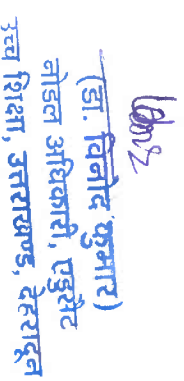 (डा. विनोद कुमार)
नोडल अधिकारी, एडुसैट
उच्च शिक्षा, उत्तराखण्ड, देहरादून